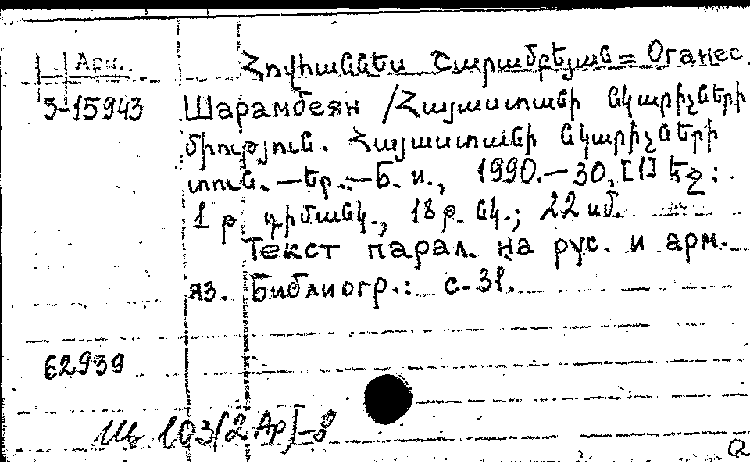 Арм.
Հովհաննես Շարամբեյան = Оганес
5-15943 Шарамбеян / Հայաստանի նկարիչների
միություն. Հայաստանի նկարիչների
տուն. — Եր.: — Б. и., 1990. — 30, [1] եջ:
1 թ դիմանկ., 18 թ. նկ.; 22 սմ.
Текст парал. на рус. и арм.
яз. Библиогр.: с. 31.
62939
Щ 103(2Ар)-8